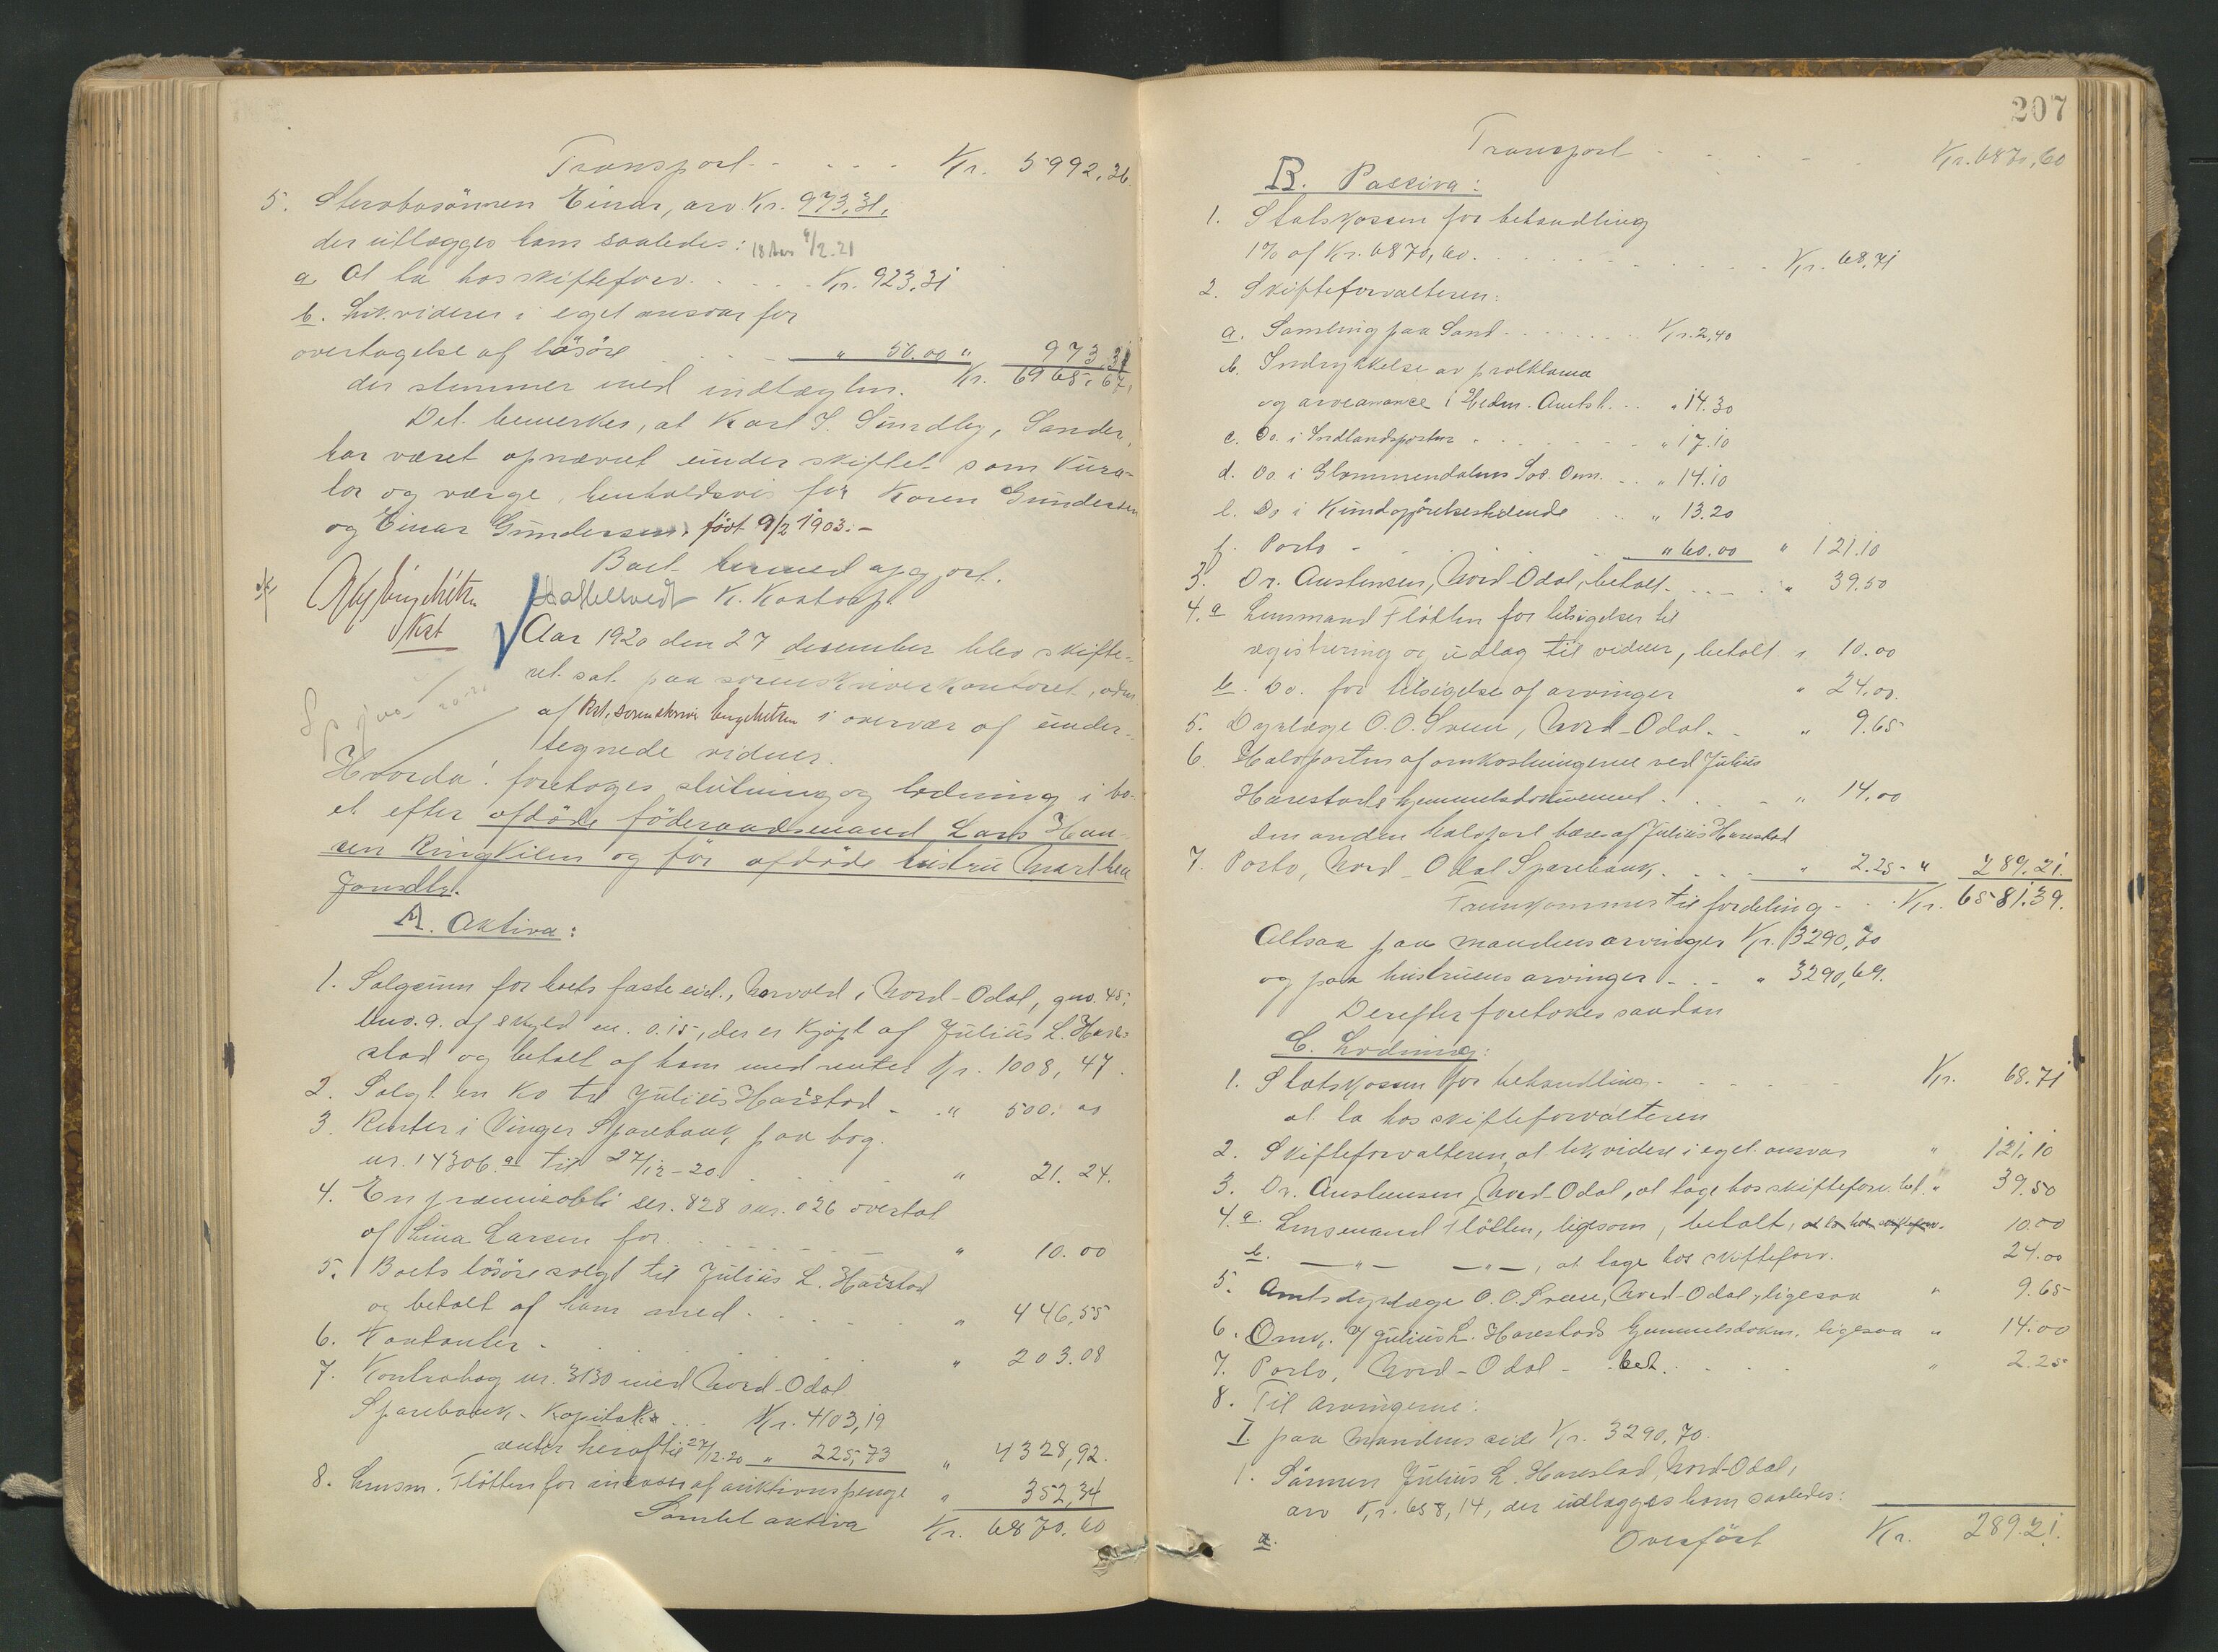 Transport - - - - Kr. 5992.36.
5. Stervbosönnen Einar, arv Kr. 973,31,
der utlægges ham saaledes: 18 aar 9/2.21
a. At ta hos skifteforv. . . . . Kr. 923.31
b. Likviderer i eget ansvar for
overtagelse af lösöre . . . " 50.00 " 973.31
der stemmer med indtægten. Kr. 6965,67,
Det bemerkes, at Karl J. Sundby, Sander,
har været opnævnt under skiftet som kura-
tor og værge, henholdsvis for Karen Gundersen
og Einar Gundersen, født 9/2 1903.-
Boet hermed opgjort.
K. Kaatorp.
Kst
Aar 1920 den 27 desember blev skifte-
ret sat paa sorenskriverkontoret, adm
af Kst. sorenskriver Engebretsen i overvær af under-
tegnede vidner.
Hvorda! foretoges slutning og lodning i bo-
et efter afdöde föderaadsmand Lars Han-
sen Ringkilen og för afdöde hustru Marthea
Jonsdtr.
A. Aktiva:
1. Salgsum for boets faste eid., Norvold i Nord-Odal, gno. 45,
bno. 9. af skyld m. 0.15, der er kjøpt af Julius L. Hare-
stad og betalt af ham med renter Kr. 1008, 47.
2. Solgt en ko til Julius Harstad - . " 500. 00
3. Renter i Vinger Sparebank paa bog.
nr. 14306.a til 27/12-20. . . . . " 21. 24.
4. En præmieobli ser. 828 nr. 026 overtat
af Lina Larsen for . . . . . " 10. 00
5. Boets lösöre solgt til Julius L. Harstad
og betalt af ham med . . . . " 446,55
6. Kontanter . . . . . . " 203.08
7. Kontrabog nr. 3130 med Nord-Odal
Sparebank. Kapital . . . Kr. 4103,19
renter heraf til 27/12-20 " 225,73 " 4328,92.
8. Lensm. Fløtten for incasso af auktionspenge " 352,34
Samlet aktiva Kr. 6870.60
207
Transport - - - - - Kr. 6870,60
B. Passiva:
1. Statskassen for behandling
1% af Kr. 6870,60. . . . . . . . . Kr. 68.71
2. Skifteforvalteren:
a. Samling paa Sand . . . . . . Kr. 2,40
b. Indrykkelse av proklama
og arveanonce i Hedm. Amtst. . . . " 14.30
c. Do. i Indlandsposten . . . . . " 17.10
d. Do. i Glommendalens Soc. Dem. . . " 14.10
e. Do i Kundgjörelsestidende . . . " 13.20
f. Porto - . . . . . " 60.00 " 121.10
3. Dr. Austensen, Nord-Odal, betalt. . . . . " 39.50
4. a Lensmand Fløtten for tilsigelser til
registrering og utlæg til vidner, betalt " 10.00
b. Do. for tilsigelse af arvinger " 24.00
5. Dyrlæge O. O. Sveen, Nord-Odal. . " 9.65
6. Halvparten af omkostningerne ved Julius
Harestads hjemmelsdokument . . . . " 14.00
den anden halvpart bæres af Julius Harestad
7. Porto, Nord-Odal Sparebank. . . . " 2.25 - " 289.21.
Fremkommer til fordeling - . . Kr. 6581.39.
Altsaa paa mandens arvinger Kr. 3290,70
og paa hustruens arvinger - . . " 3290,69.
Derefter foretokes saadan
C. Lodning:
1. Statskassen for behandling . - - - - Kr. 68.71
at ta hos skifteforvalteren
2. Skifteforvalteren, at likvidere i eget ansvar " 121,10
3. Dr. Austensen, Nord-Odal, at tage hos skifteforv. bet. " 39.50
4. a. Lensmand Fløtten, ligesom, betalt, at ta hos skifteforv. 10.00
b. — " — — " —, at tage hos skifteforv. 24.00
5. Amtsdyrlæge O. O. Sveen, Nord-Odal, ligesaa " 9.65
6. Omk. v/ Julius L. Harestads hjemmelsdokm. ligesaa " 14.00
7. Porto, Nord-Odal - bet. . . . . " 2.25
8. Til arvingerne:
I paa mandens side Kr. 3290,70.
1. Sönnen Julius L. Harestad, Nord-Odal,
arv Kr. 658,14, der utlægges ham saaledes:
a. Overfört Kr. 289.21.